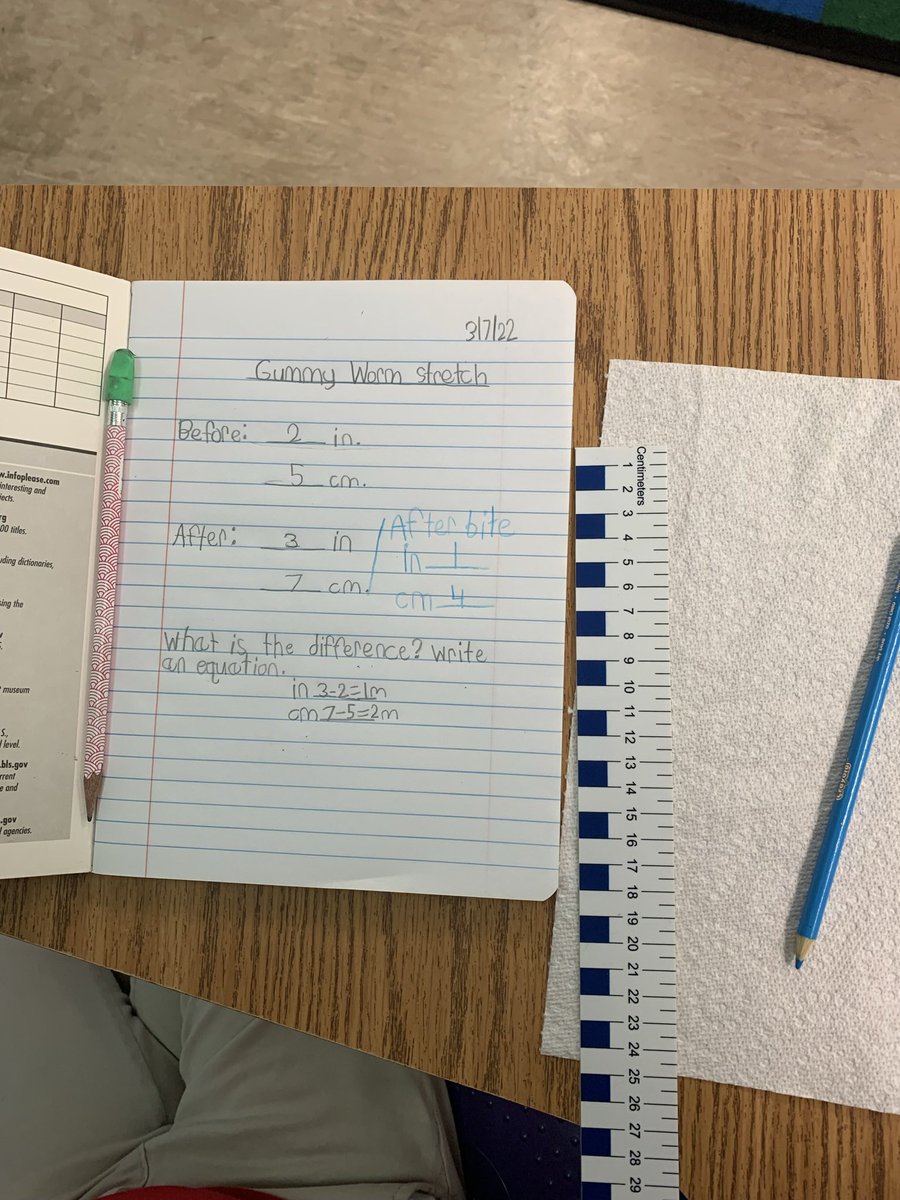 3/7/22
Gummy Worm stretch
Before: 2 in.
5 cm.
After: 3 in
7 cm.
After bite
in 1
cm 4
What is the difference? Write
an equation.
in 3-2=1m
cm 7-5=2m
w.infoplease.com
interesting and
jects.
rg
00 titles.
uding dictionaries,
sing the
museum
S.,
l level.
.bls.gov
rrent
e and
.gov
l agencies.
Centimeters
1
2
3
4
5
6
7
8
9
10
11
12
13
14
15
16
17
18
19
20
21
22
23
24
25
26
27
28
29
Crayola